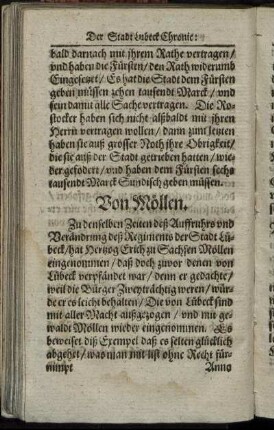 Der Stadt Lübeck Chronic:
bald darnach mit jhrem Rathe vertragen/
vnd haben die Fürsten/ den Rath widerumb
Eingesetzt/ Es hat die Stadt dem Fürsten
geben müssen zehen tausendt Marck/ vnd
sein damit alle Sache vertragen. Die Ro-
stocker haben sich nicht alßbaldt mit jhren
Herrn vertragen wollen/ dann zum letzten
haben sie auß grosser Noth jhre Obrigkeit/
die sie auß der Stadt getrieben hatten/ wie-
der gefodert/ vnd haben dem Fürsten sechs
tausendt Marck Sundisch geben müssen.
Von Möllen.
Zu denselben Zeiten deß Auffruhrs vnd
Veränderung deß Regiments der Stadt Lü-
beck/ hat Hertzog Erich zu Sachsen Möllen
eingenommen/ daß doch zuvor denen von
Lübeck verpfändet war/ denn er gedachte/
weil die Bürger Zweyträchtig weren/ wür-
de er es leicht behalten/ Die von Lübeck sind
mit aller Macht außgezogen/ vnd mit ge-
waldt Möllen wieder eingenommen. Es
beweiset diß Exempel daß es selten glücklich
abgehet/ was man mit list ohne Recht für-
nimpt Anno